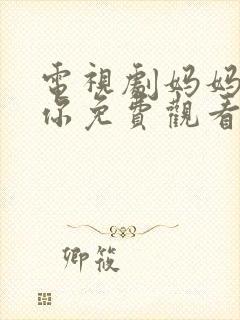 電視劇妈妈
你免費觀看
卿筱